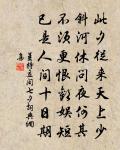 此夕從来天上少
斜河休問夜何其
不須更恨歡娛短
已是人間十日期
姜特立閏七夕詞典網
集